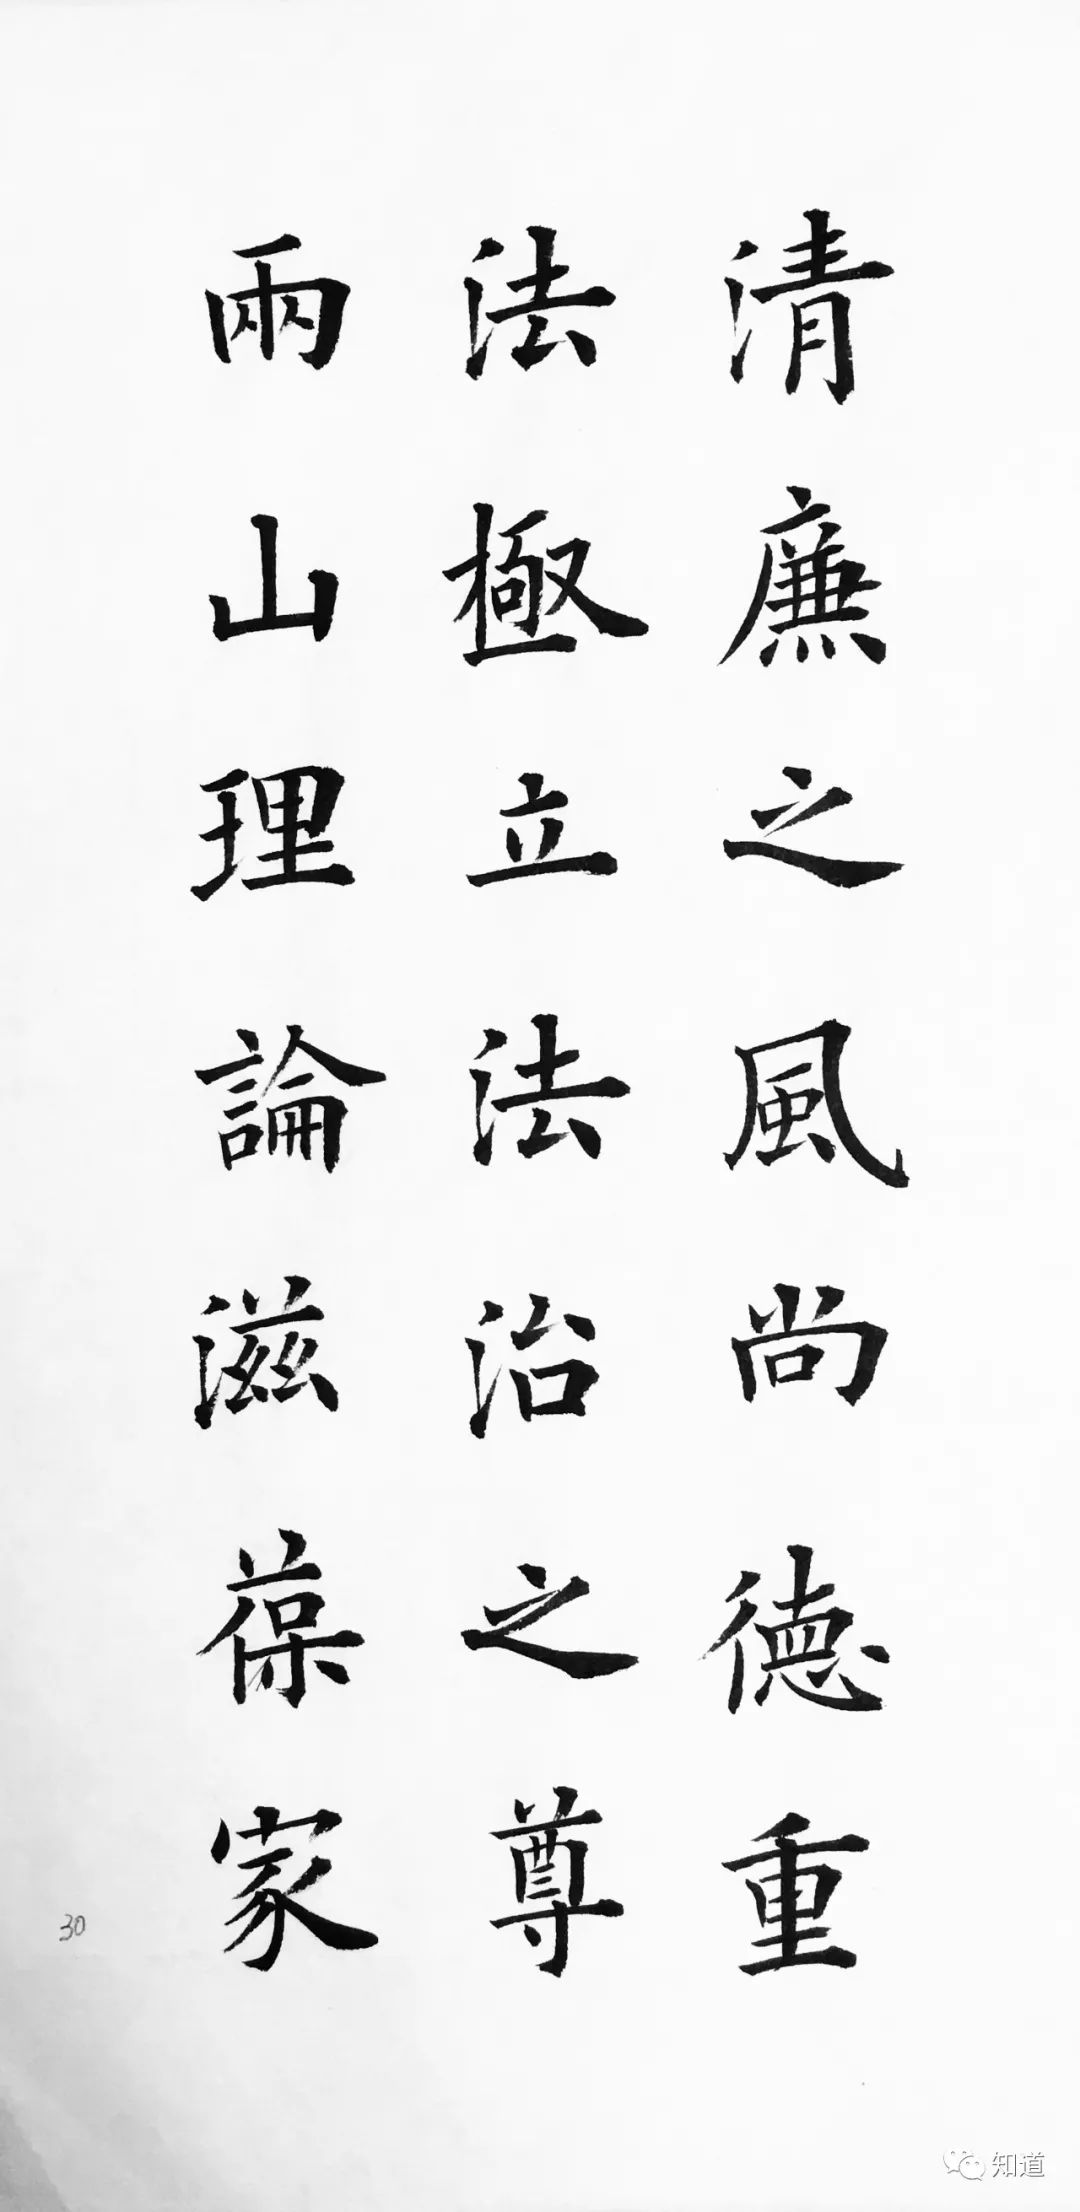 清廉之風尚德重
法極立法治之尊
兩山理論滋葆家
30
知道